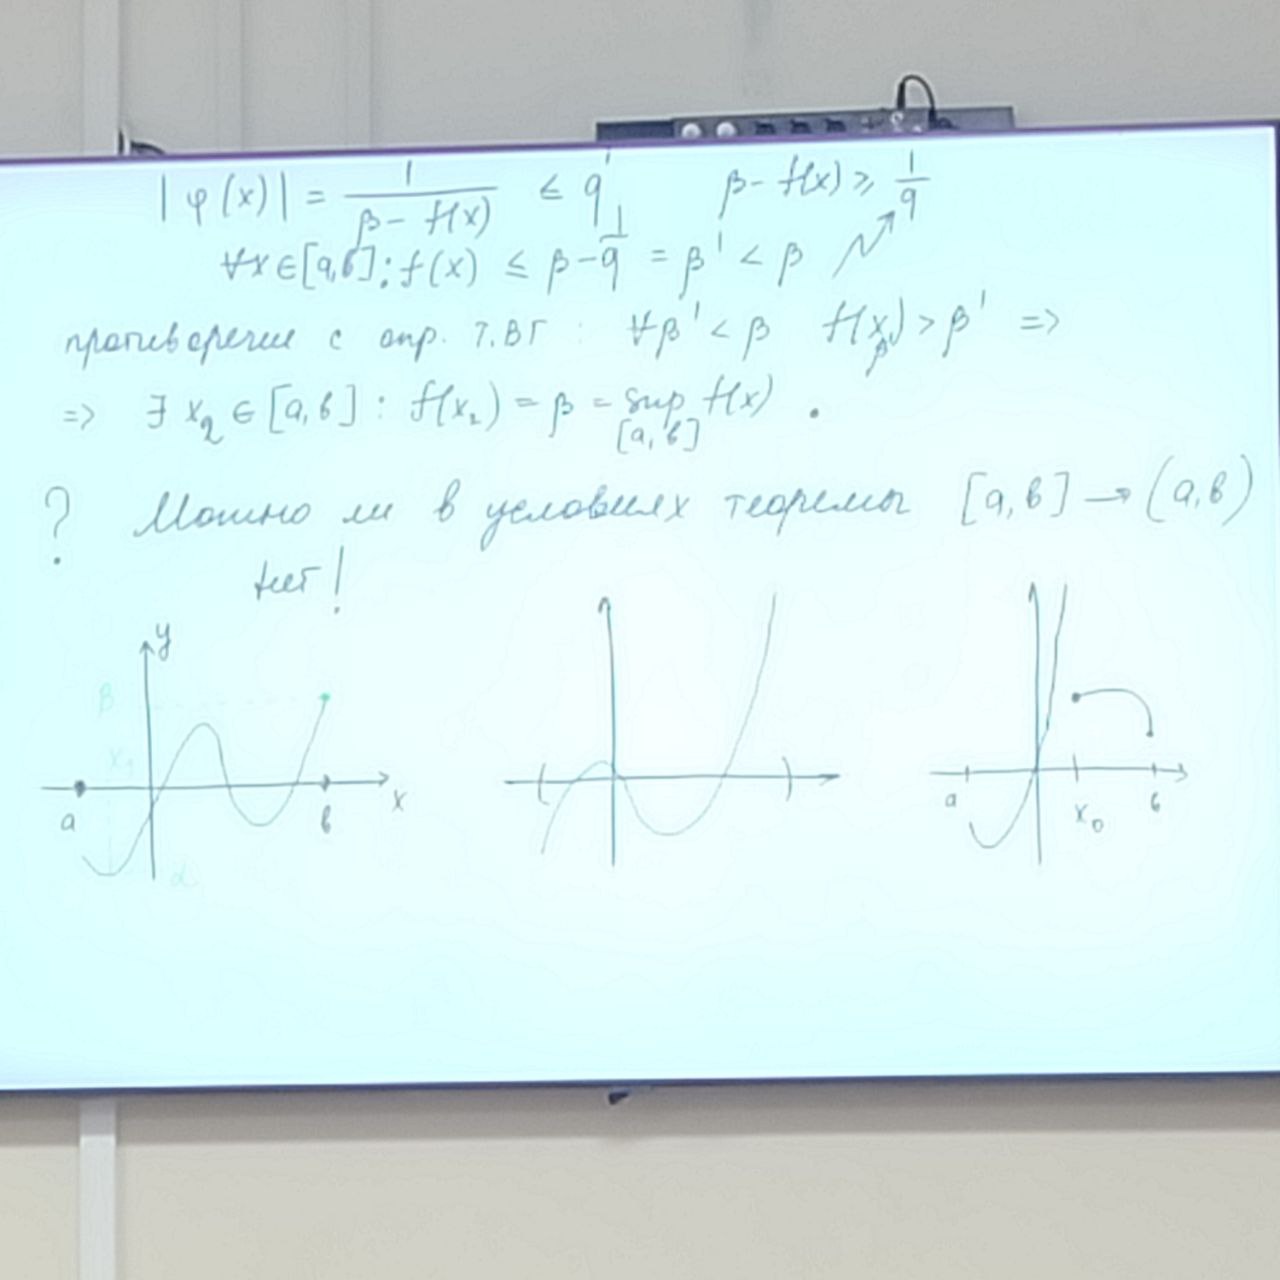 |φ(x)| = 1/(β - f(x)) ≤ q' β - f(x) ≥ 1/q
∀x ∈ [a,b]: f(x) ≤ β - 1/q = β' < β
противоречие с опр. Т.ВГ : ∀β' < β f(x_β') > β' =>
=> ∃ x₂ ∈ [a,b] : f(x₂) = β = sup f(x) .
[a,b]
? Можно ли в условиях теоремы [a,b] → (a,b)
нет!
y
β
x₁
a b x
α
a x₀ b